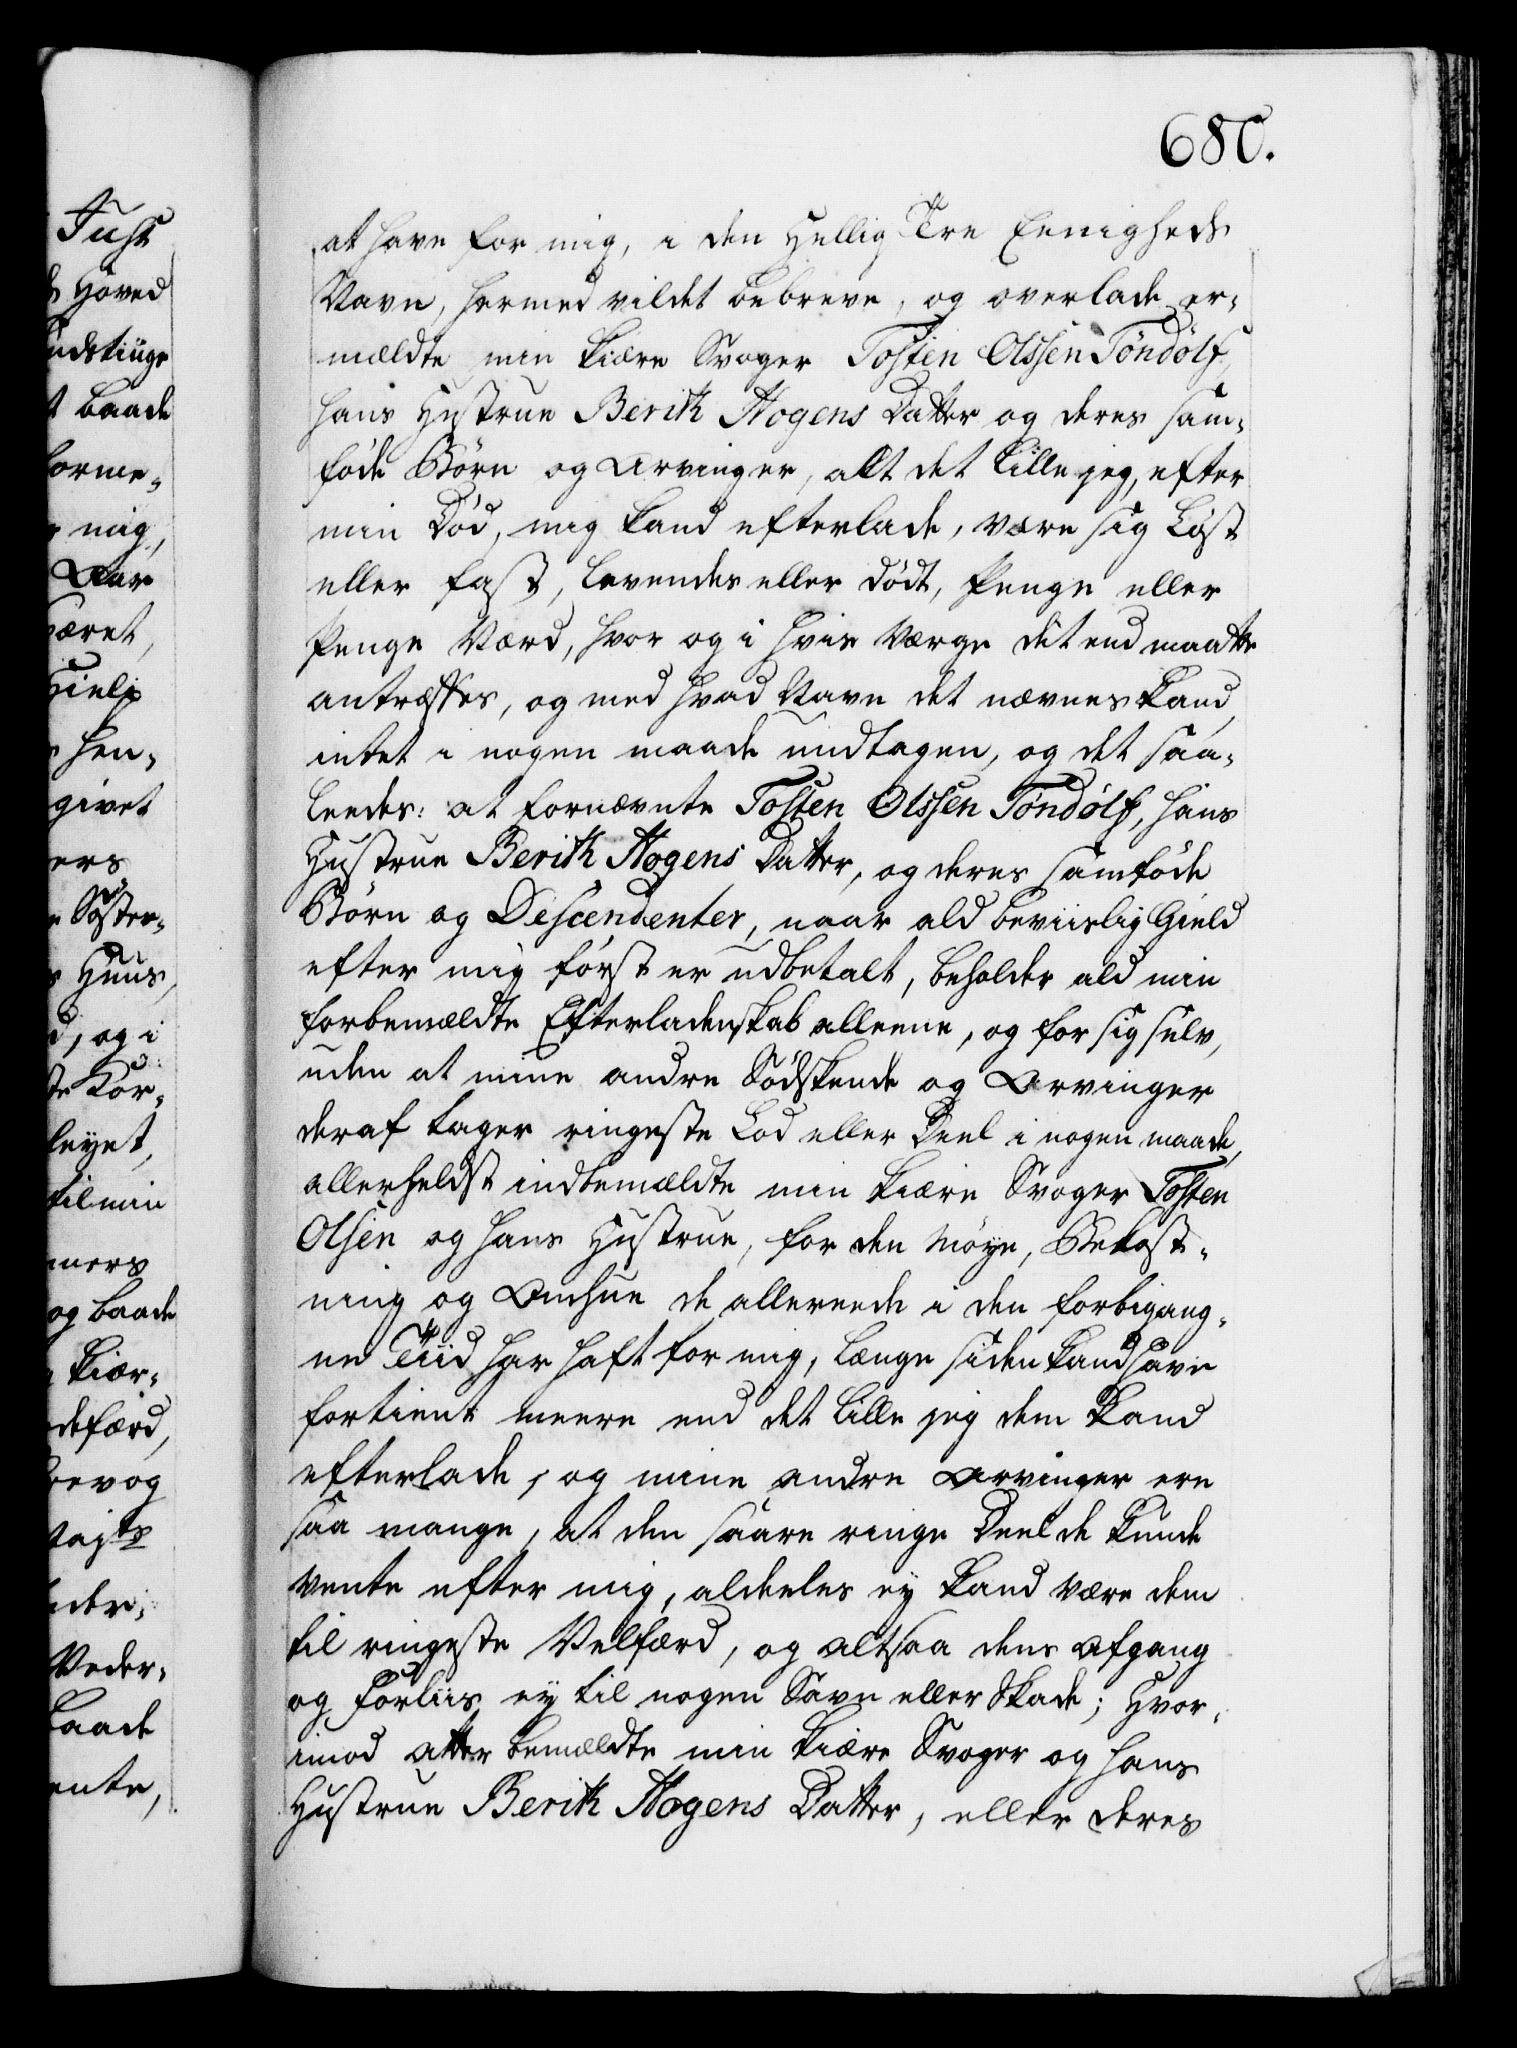 680.
at have for mig, i den Hellig Tre Eenigheds
Navn, hermed vildet bebreve, og overlade er-
mældte min kiære Svoger Tosten Olssen Töndölf,
hans Hustrue Berith Aagens Datter og deres sam-
føde Børn og Arvinger, alt det lille jeg, efter
min Død, mig kand efterlade, være sig Løst
eller fast, levendes eller dødt, Penge eller
Penge Værd, hvor og i hvis Værge det end maatte
antræffes, og med hvad Navn det nævnes kand,
intet i nogen maade undtagen, og det saa-
leedes: at fornævnte Tosten Olssen Töndölf, hans
Hustrue Berith Aagens Datter, og deres samføde
Børn og Descendenter, naar ald beviislig Gield
efter mig først er udbetalt, beholder ald min
forbemældte Efterladenskab alleene, og for sig selv,
uden at mine andre Sødskende og Arvinger
deraf tager ringeste Lod eller Deel i nogen maade,
allerheldst indbemældte min kiære Svoger Tosten
Olsen og hans Hustrue, for den Møye, Bekost-
ning og Omhue de allereede i den forbigang-
ne Tiid har haft for mig, længe siden kand have
fortient meere end det lille jeg dem kand
efterlade, og mine andre Arvinger ere
saa mange, at den saare ringe Deel de kunde
vente efter mig, aldeeles ey kand være dem
til ringeste Velfærd, og altsaa dens Afgang
og Forliis ey til nogen Savn eller Skade; Hvor-
imod atter bemældte min kiære Svoger og hans
Hustrue Berith Aagens Datter, eller deres